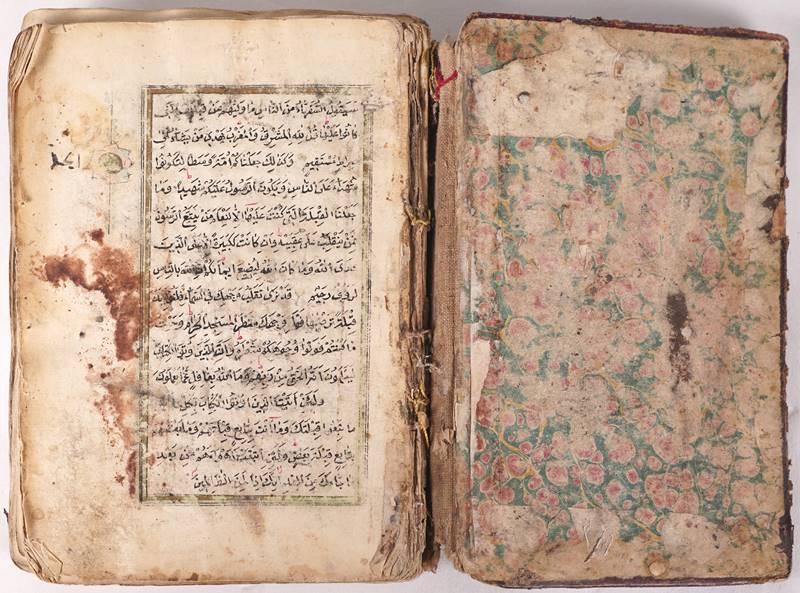 سيقول السفهاء من الناس ما وليهم عن قبلتهم التى
كانوا عليها قل لله المشرق والمغرب يهدى من يشاء الى
صراط مستقيم وكذلك جعلناكم امة وسطا لتكونوا
شهداء على الناس ويكون الرسول عليكم شهيدا وما
جعلنا القبلة التى كنت عليها الا لنعلم من يتبع الرسول
ممن ينقلب على عقبيه وان كانت لكبيرة الا على الذين
هدى الله وما كان الله ليضيع ايمانكم ان الله بالناس
لرؤف رحيم قد نرى تقلب وجهك فى السماء فلنولينك
قبلة ترضيها فول وجهك شطر المسجد الحرام وحيث
ما كنتم فولوا وجوهكم شطره وان الذين اوتوا الكتاب
ليعلمون انه الحق من ربهم وما الله بغافل عما يعملون
ولئن اتيت الذين اوتوا الكتاب بكل اية
ما تبعوا قبلتك وما انت بتابع قبلتهم وما بعضهم
بتابع قبلة بعض ولئن اتبعت اهواءهم من بعد
ما جاءك من العلم انك اذا لمن الظالمين